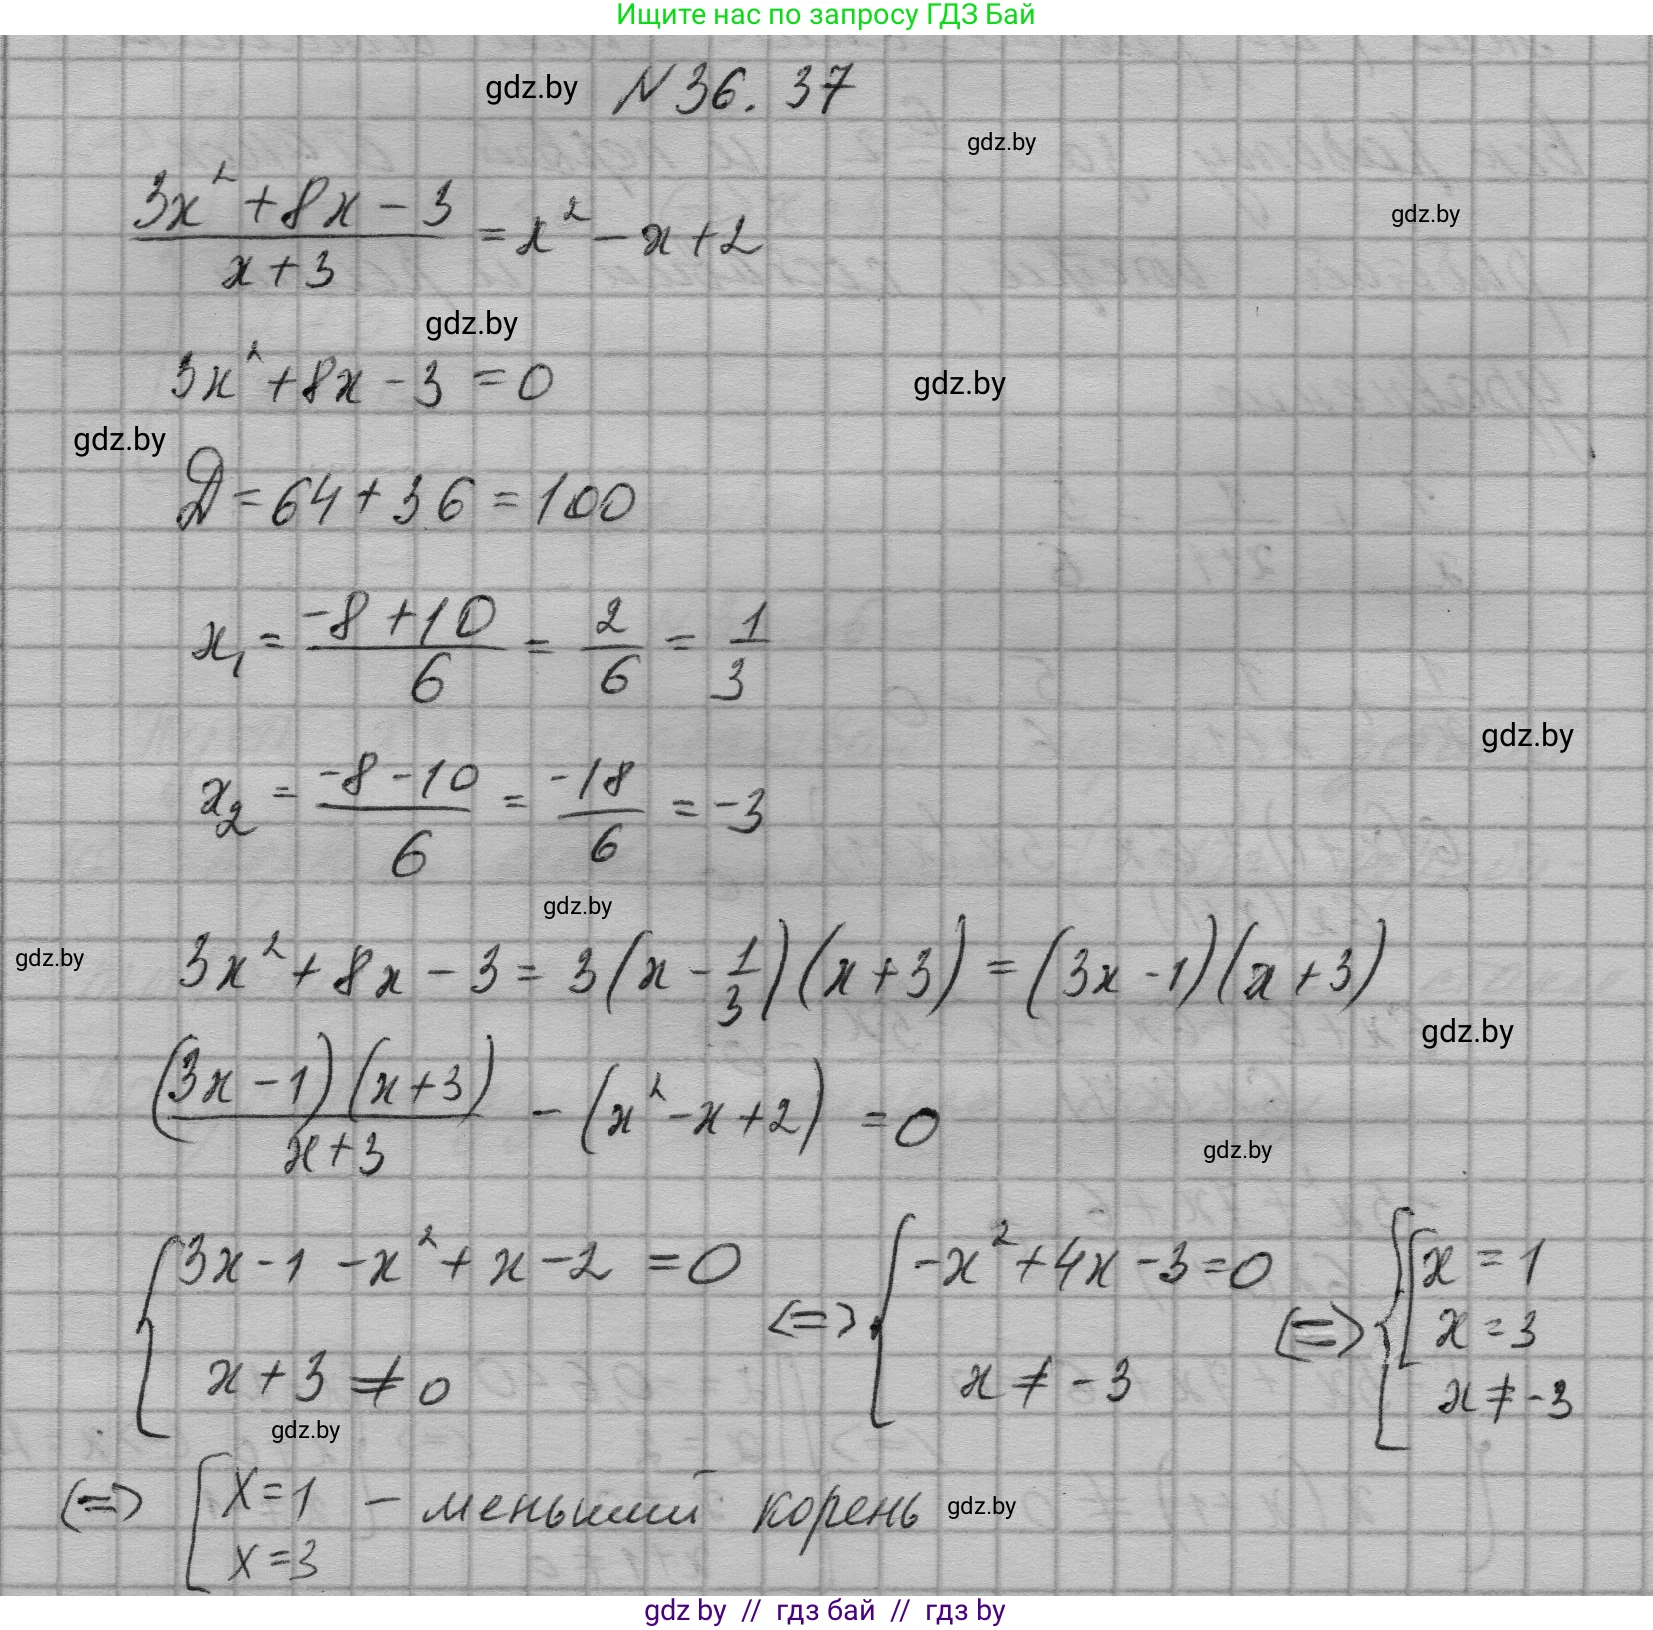 Ищите нас по запросу ГДЗ Бай
gdz.by N 36. 37
gdz.by
gdz.by
(3x² + 8x - 3)/(x + 3) = x² - x + 2
gdz.by
3x² + 8x - 3 = 0
gdz.by
gdz.by
D = 64 + 36 = 100
x₁ = (-8 + 10)/6 = 2/6 = 1/3
gdz.by
x₂ = (-8 - 10)/6 = -18/6 = -3
gdz.by
gdz.by
3x² + 8x - 3 = 3(x - 1/3)(x + 3) = (3x - 1)(x + 3)
gdz.by
((3x - 1)(x + 3))/(x + 3) - (x² - x + 2) = 0
gdz.by
{ 3x - 1 - x² + x - 2 = 0 <=> { -x² + 4x - 3 = 0 <=> { [ x = 1
x = 3
x + 3 ≠ 0 x ≠ -3 x ≠ -3
gdz.by
<=> [ x = 1 - меньший корень gdz.by
x = 3
gdz by // гдз бай // gdz by